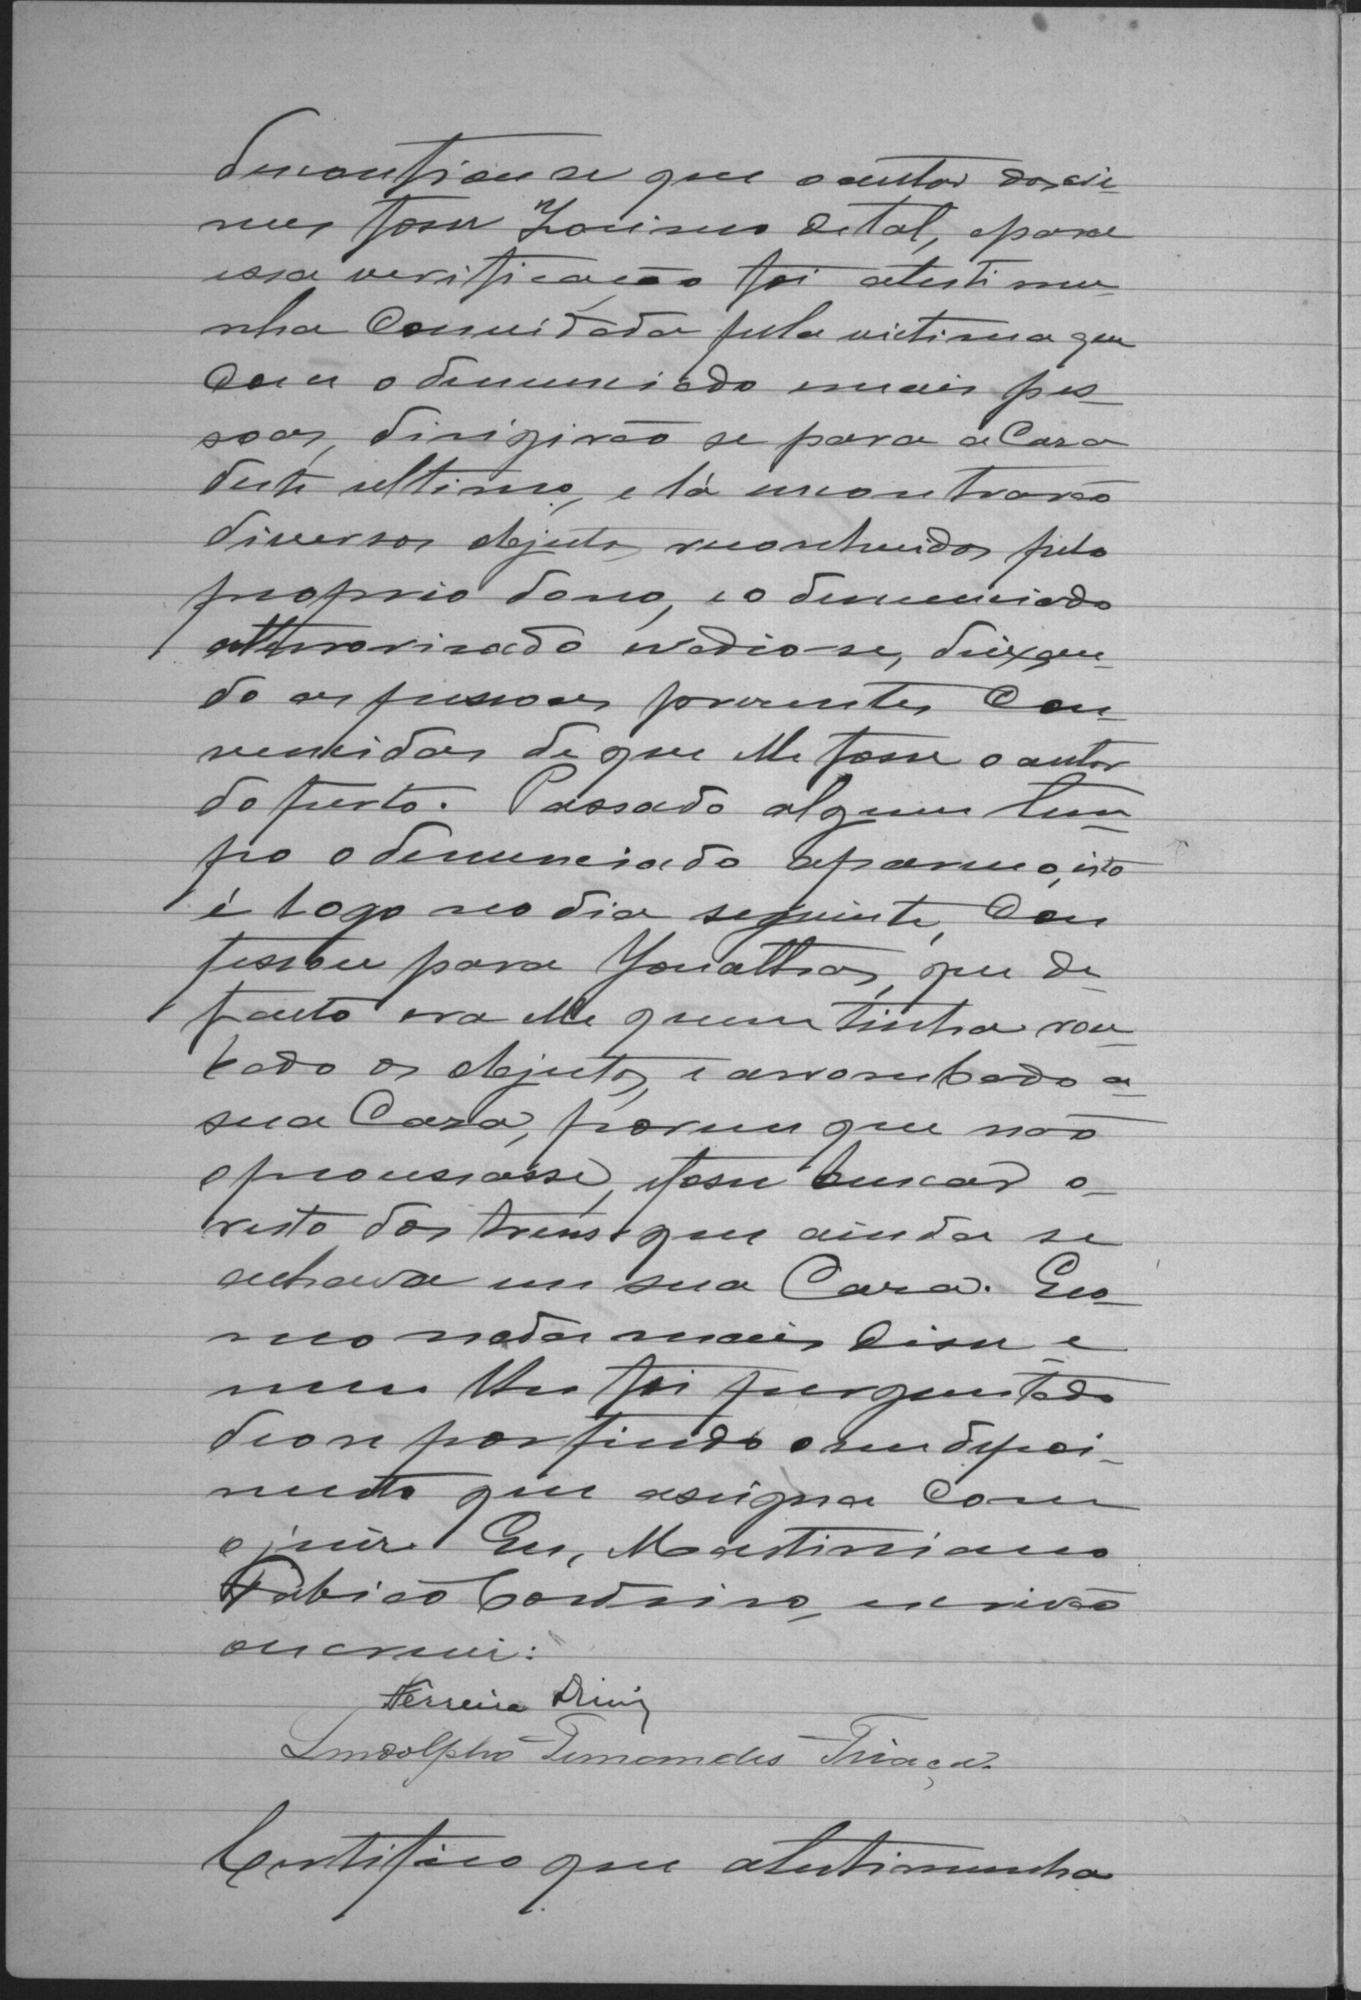 desconfiou se que o autor dos cri-
mes fosse Zosimo de tal, e para
essa verificação foi a testimu-
nha convidada pela victima que
com o denunciado e mais pes-
soas, dirigirão se para a casa
deste ultimo, e lá encontrarão
diversos objectos reconhecidos pelo
proprio dono, e o denunciado
atterrorisado evadio-se, deixan-
do as pessoas presentes con-
vencidas de que elle fosse o autor
do furto. Passado algum tem-
po o denunciado appareceo, isto
é logo no dia seguinte, con
fessou para Jonathas, que de
facto era elle quem tinha rou-
bado os objectos, e arrombado a
sua casa, porem que não
o processasse, e fosse buscar o
resto dos trens que ainda se
achava em sua casa. E co-
mo nada mais disse e
nem lhe foi perguntado
deo se por findo o seu depoi-
mento que assigna com
o juiz. Eu, Martiniano
Fabião Cordeiro, escrivão
o escrevi:
Ferreira Diniz
Lindolpho Fernandes
Certifico que a testimunha